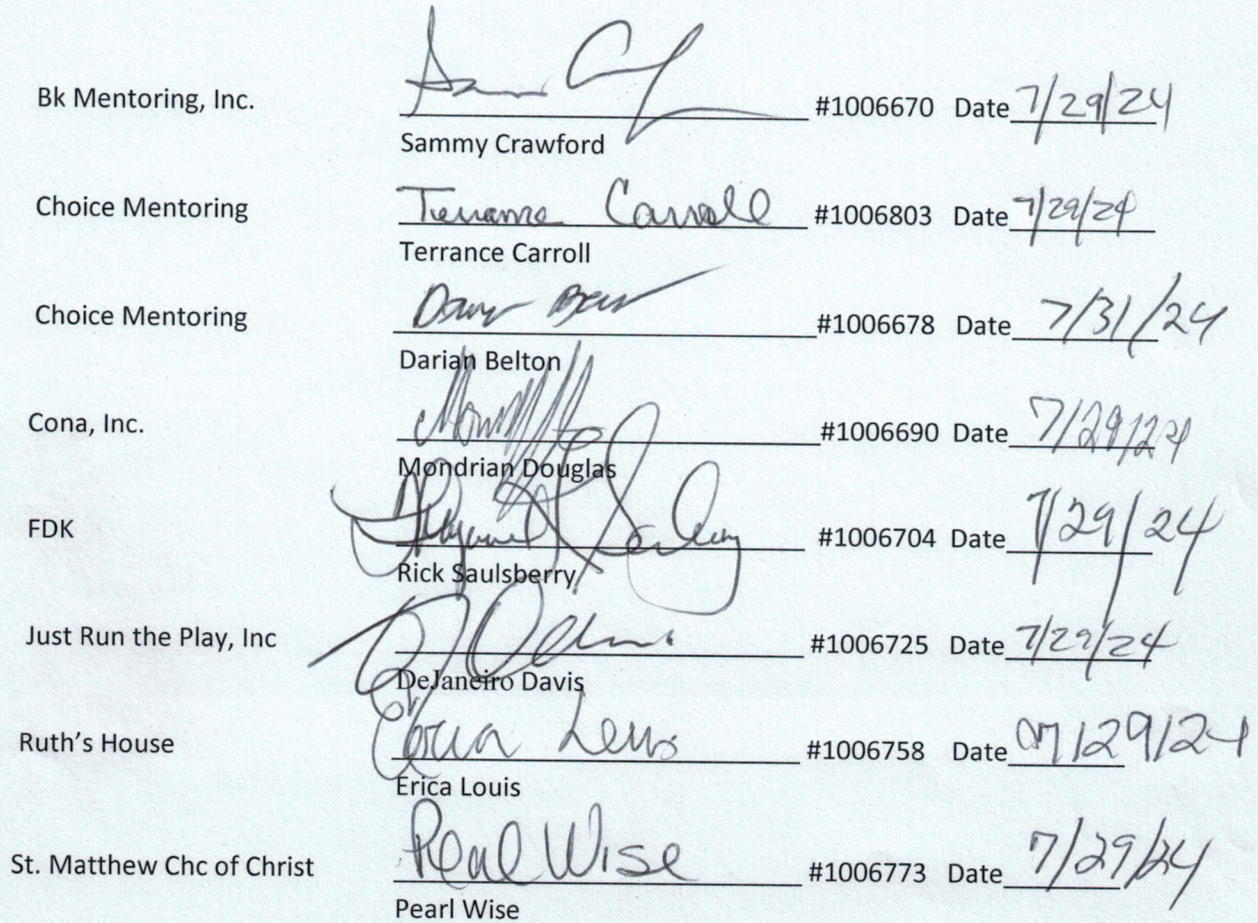 Bk Mentoring, Inc. #1006670 Date 7/29/24
Sammy Crawford
Choice Mentoring Terrance Carroll #1006803 Date 7/29/24
Terrance Carroll
Choice Mentoring #1006678 Date 7/31/24
Darian Belton
Cona, Inc. #1006690 Date 7/29/24
Mondrian Douglas
FDK #1006704 Date 7/29/24
Rick Saulsberry
Just Run the Play, Inc #1006725 Date 7/29/24
DeJaneiro Davis
Ruth's House Erica Louis #1006758 Date 07/29/24
Erica Louis
St. Matthew Chc of Christ Pearl Wise #1006773 Date 7/29/24
Pearl Wise